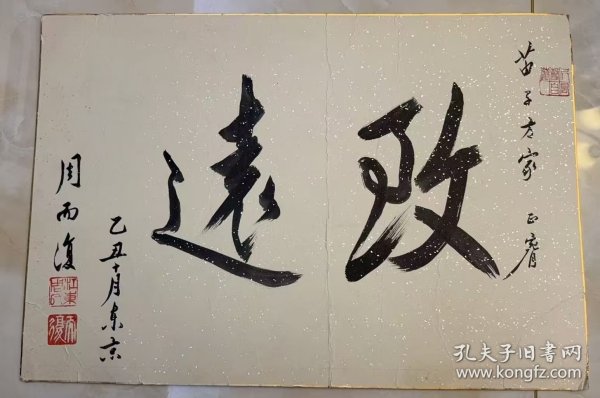 苗子方家正腕
致遠
乙丑十月東京
周而復
孔夫子旧书网
www.kongfz.com